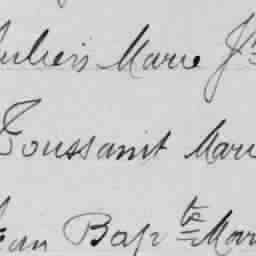 Julien Marie Jh
Toussaint Marie
Jean Bapte Marie